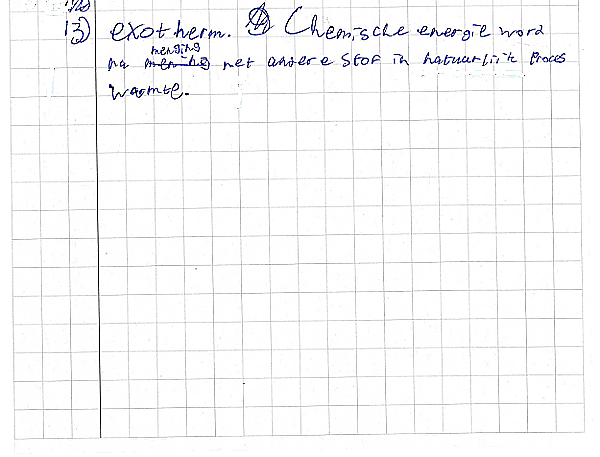 13) exotherm. Chemische energie word
menging
na mening met andere stof in natuurlijk Proces
warmte.